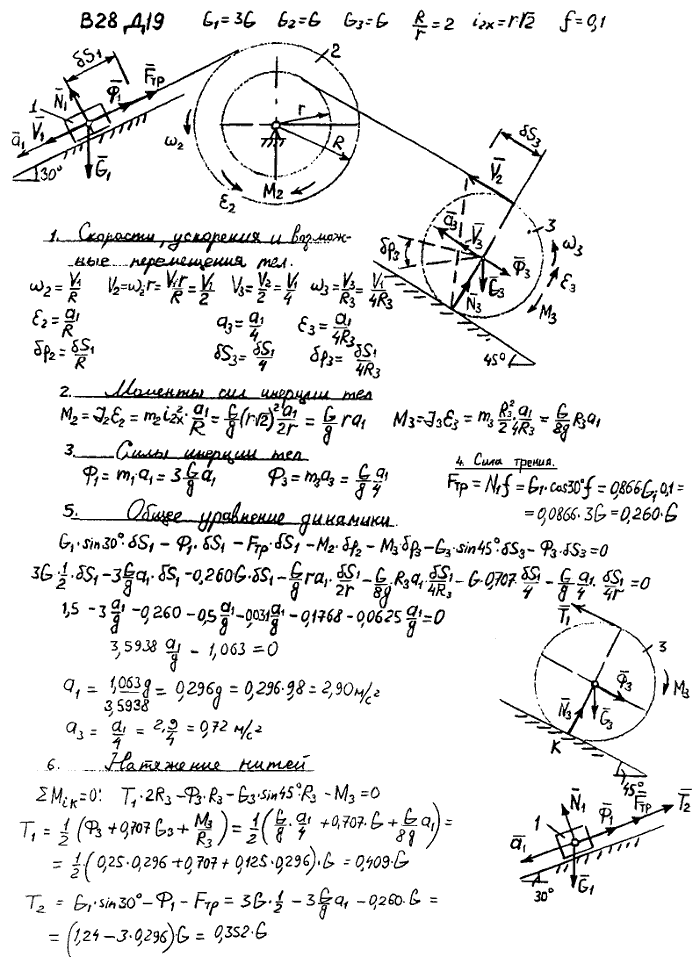 В28 Д19 G₁=3G G₂=G G₃=G R/r=2 i₂ₓ=r√2 f=0,1
δS₁
N̄₁ Φ̄₁ F̄тр
1
ā₁ V̄₁
30° Ḡ₁
2
r
R
ω₂
M₂
ε₂
δS₃
V̄₂
3
ā₃ V̄₃
δφ₃ ω₃
Φ̄₃
Ḡ₃ ε₃
N̄₃ M₃
45°
1. Скорости, ускорения и возмож-
ные перемещения тел.
ω₂=V₁/R V₂=ω₂·r=V₁·r/R=V₁/2 V₃=V₂/2=V₁/4 ω₃=V₃/R₃=V₁/4R₃
ε₂=a₁/R a₃=a₁/4 ε₃=a₁/4R₃
δφ₂=δS₁/R δS₃=δS₁/4 δφ₃=δS₁/4R₃
2. Моменты сил инерции тел
M₂=J₂ε₂=m₂i₂ₓ²·a₁/R=G/g(r√2)²a₁/2r=G/g ra₁ M₃=J₃ε₃=m₃R₃²/2·a₁/4R₃=G/8g R₃a₁
3. Силы инерции тел
Φ₁=m₁a₁=3G/g a₁ Φ₃=m₃a₃=G/g a₁/4
4. Сила трения.
Fтр=N₁f=G₁·cos30°f=0,866G₁0,1=
=0,0866·3G=0,260·G
5. Общее уравнение динамики.
G₁·sin30°·δS₁-Φ₁·δS₁-Fтр·δS₁-M₂·δφ₂-M₃·δφ₃-G₃·sin45°·δS₃-Φ₃·δS₃=0
3G·1/2·δS₁-3G/g a₁·δS₁-0,260G·δS₁-G/g ra₁·δS₁/2r-G/8g·R₃a₁·δS₁/4R₃-G·0,707·δS₁/4-G/g·a₁/4·δS₁/4r=0
1,5-3a₁/g-0,260-0,5a₁/g-0,031a₁/g-0,1768-0,0625a₁/g=0
3,5938 a₁/g - 1,063 = 0
a₁ = 1,063/3,5938 g = 0,296g = 0,296·9,8 = 2,90 м/с²
a₃ = a₁/4 = 2,9/4 = 0,72 м/с²
T̄₁
3
Φ̄₃ M₃
N̄₃ Ḡ₃
K
45°
6. Натяжение нитей
ΣMᵢₖ=0: T₁·2R₃-Φ₃·R₃-G₃·sin45°R₃-M₃=0
T₁=1/2(Φ₃+0,707G₃+M₃/R₃)=1/2(G/g·a₁/4+0,707·G+G/8g a₁)=
=1/2(0,25·0,296+0,707+0,125·0,296)·G=0,409·G
T₂=G₁·sin30°-Φ₁-Fтр=3G·1/2-3G/g a₁-0,260·G=
=(1,24-3·0,296)·G=0,352·G
N̄₁ Φ̄₁ F̄тр T̄₂
1
ā₁
30° Ḡ₁